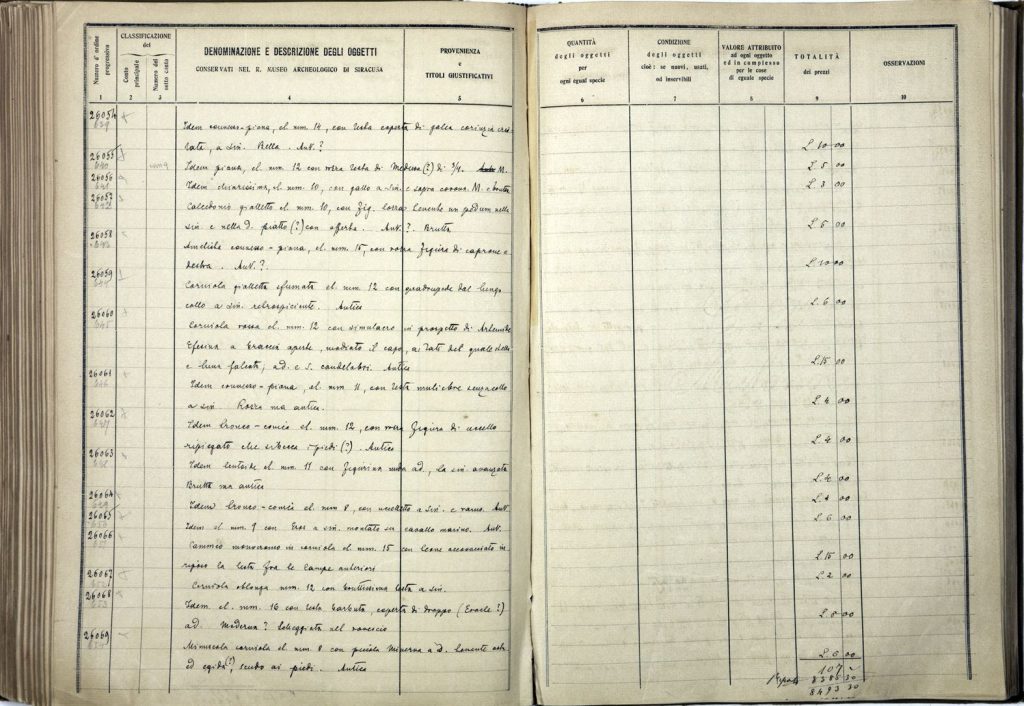 Numero d'ordine progressivo
CLASSIFICAZIONE del
Conto principale
Numero del sotto conto
DENOMINAZIONE E DESCRIZIONE DEGLI OGGETTI
CONSERVATI NEL R. MUSEO ARCHEOLOGICO DI SIRACUSA
PROVENIENZA
e
TITOLI GIUSTIFICATIVI
QUANTITÀ
degli oggetti
per
ogni egual specie
CONDIZIONE
degli oggetti
cioè: se nuovi, usati,
od inservibili
VALORE ATTRIBUITO
ad ogni oggetto
ed in complesso
per le cose
di eguale specie
TOTALITÀ
dei prezzi
OSSERVAZIONI
1 2 3 4 5 6 7 8 9 10
26054
Idem connesso-piana, el. mm. 14, con testa coperta di galea corinzia cre-
stata, a sin. Bella. Ant.? L. 10 00
26055 Idem piana, el. mm. 12 con rozza testa di Medusa (?) di 3/4. M. L. 5 00
26056 Idem el. mm. 10, con gallo a sin. e sopra corona. M. e brutta L. 3 00
26057 Calcedonio gialletto el. mm. 10, con fig. tenente un pedum nella
sin. e nella d. piatto (?) con offerta. Ant.? Brutta L. 5 00
26058
Ametista connesso-piana, el. mm. 15, con rozza figura di caprone a
destra. Ant.? L. 10 00
26059
Corniola gialletta sfumata el. mm. 12 con quadrupede dal lungo
collo a sin. retrospiciente. Antica L. 6 00
26060
Corniola rossa el. mm. 12 con simulacro in prospetto di Artemide
Efesina a braccia aperte, modiato il capo, ai lati del quale stella
e luna falcata; a d. e s. candelabri. Antica L. 15 00
26061
Idem connesso-piana, el. mm. 11, con testa muliebre senza collo
a sin. Rozza ma antica. L. 4 00
26062
Idem tronco-conica el. mm. 12, con rozza figura di uccello
ripiegato che si becca i piedi (?). Antica L. 4 00
26063
Idem lentoide el. mm. 11 con figurina nuda a d., la sin. avanzata
Brutta ma antica L. 4 00
26064
Idem tronco-conica el. mm 8, con uccelletto a sin. e ramo. Ant. L. 4 00
26065
Idem el. mm. 9 con Eros a sin. montato su cavallo marino. Ant. L. 6 00
26066
Cammeo monocromo in corniola el. mm. 15 con leone accovacciato in
riposo la testa fra le zampe anteriori L. 15 00
26067
Corniola oblonga mm. 12 con bruttissima testa a sin. L. 2 00
26068
Idem el. mm. 16 con testa barbuta, coperta di drappo (Eracle?)
a d. Moderna? Scheggiata nel rovescio L. 8 00
26069
Minuscola corniola el. mm. 8 con piccola Minerva a d. tenente asta
ed egida (?), scudo ai piedi. Antica L. 6 00
107
Riporto 8386 30
8493 30